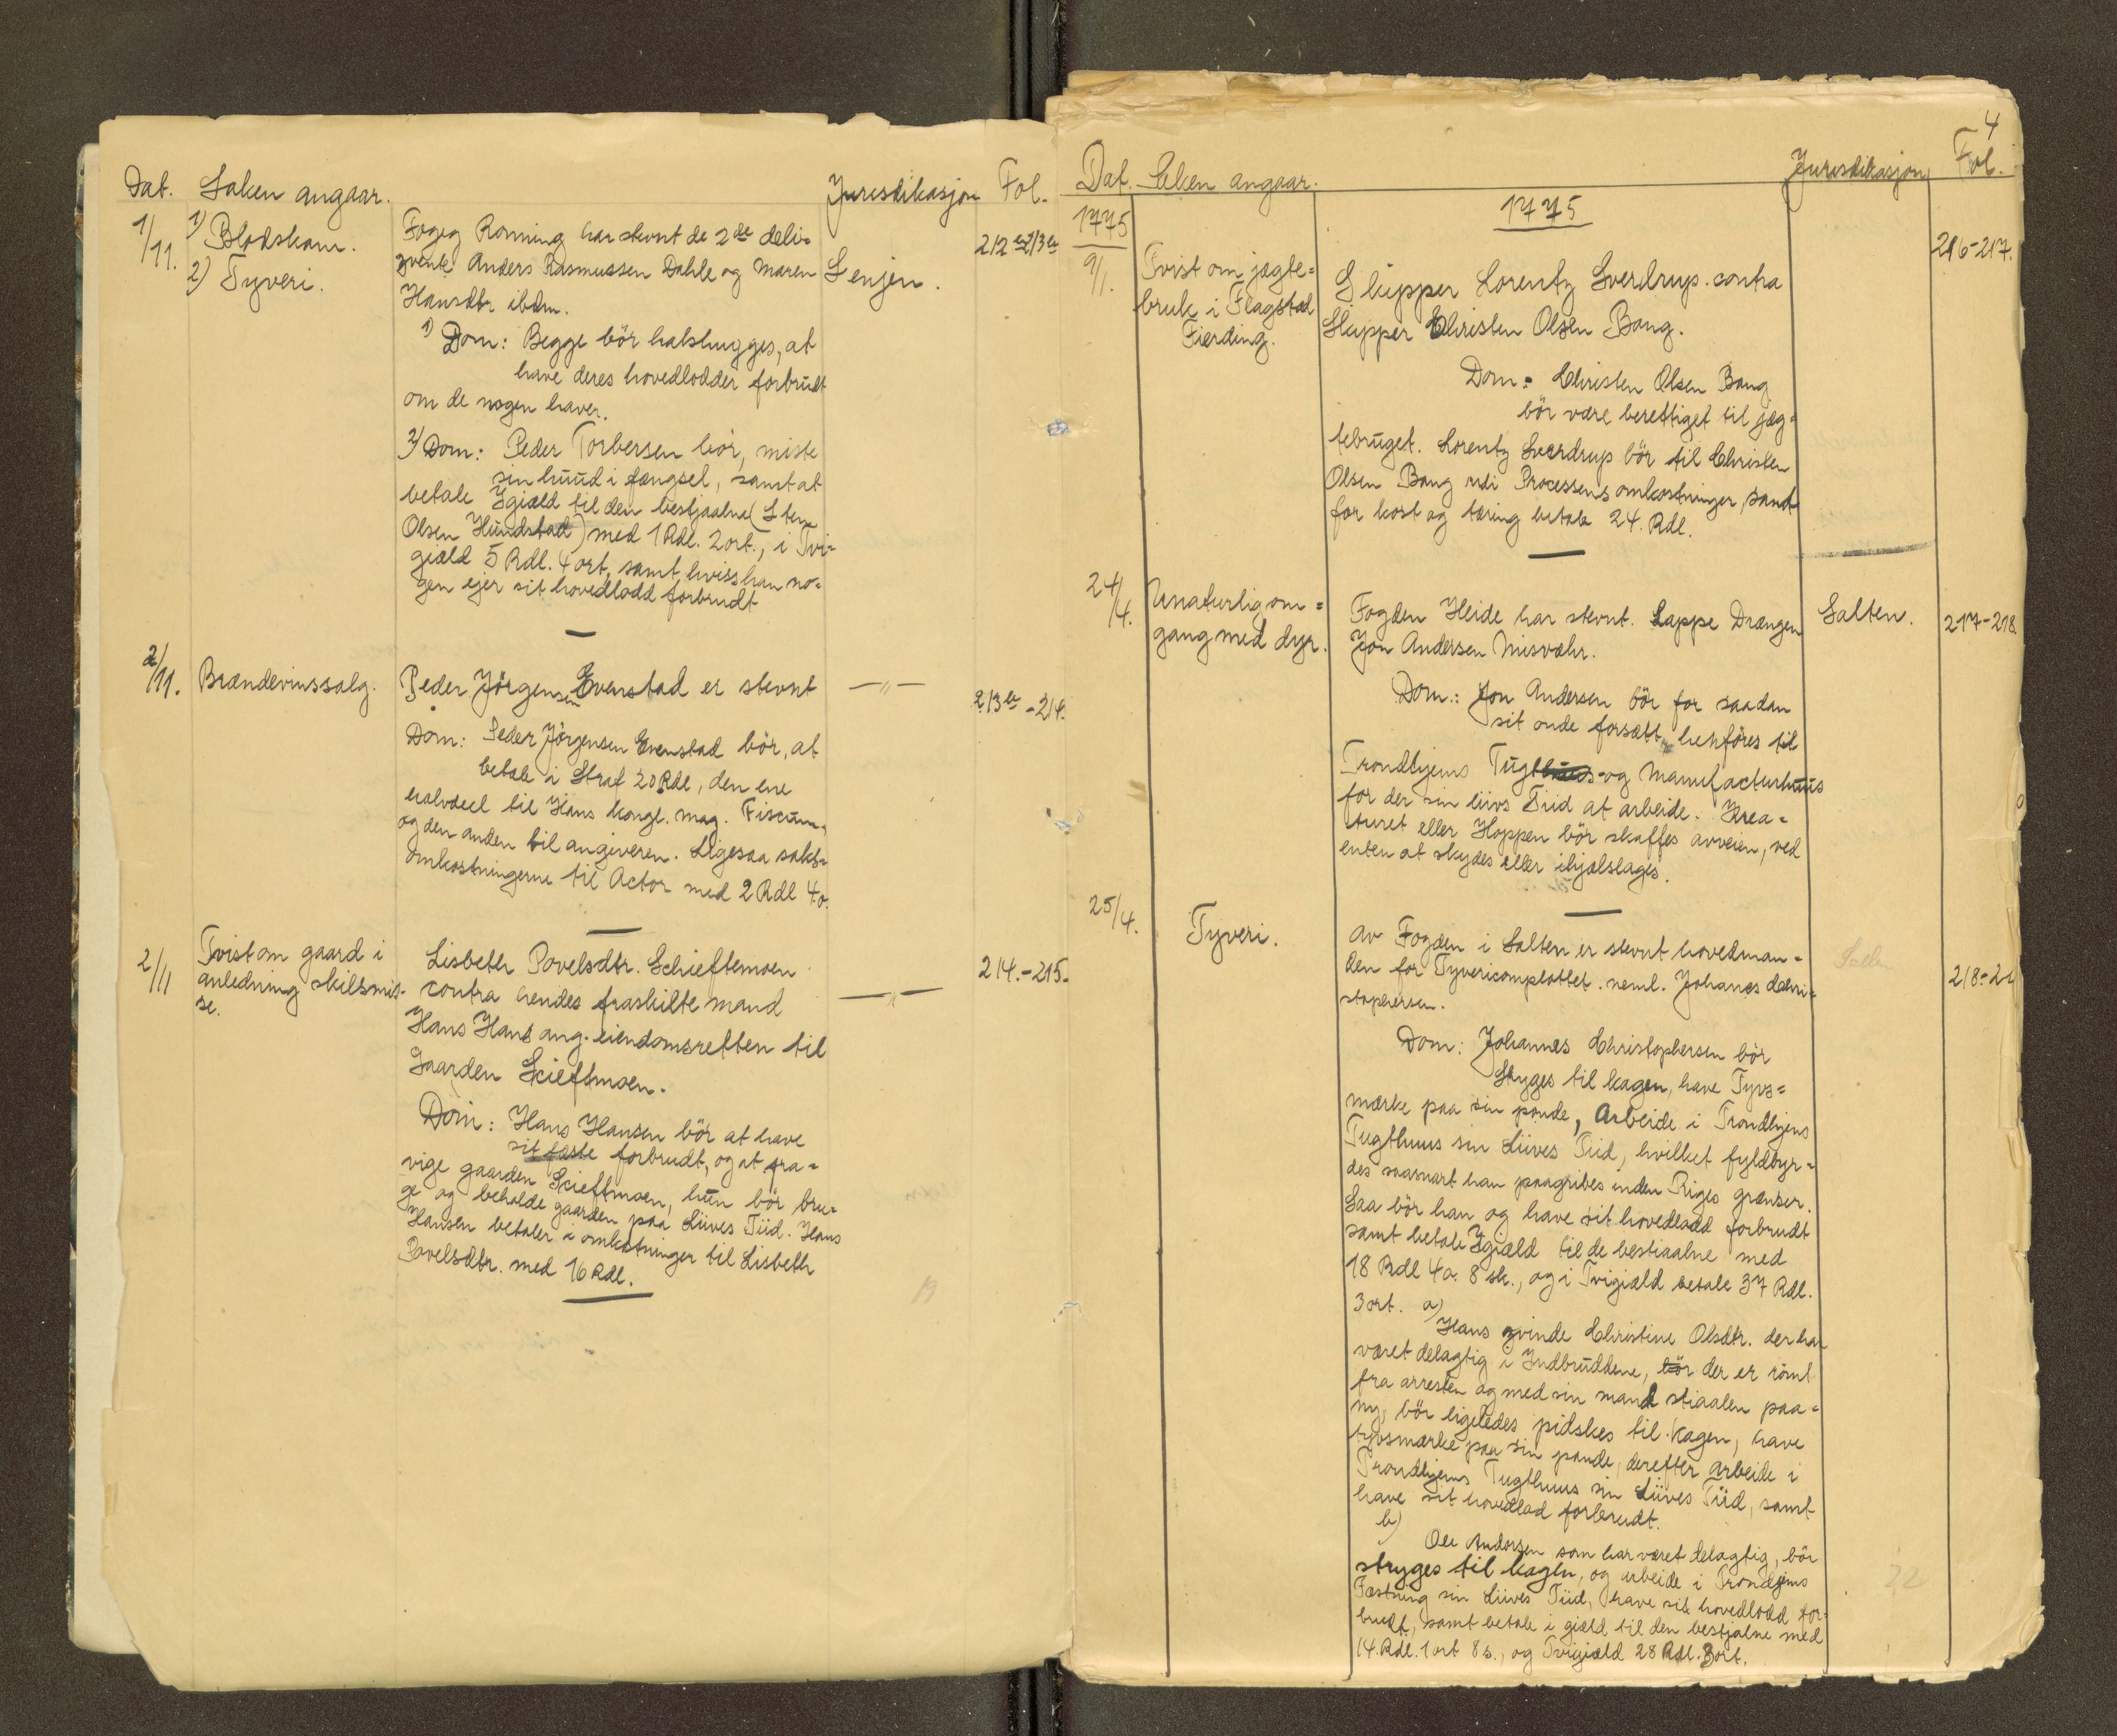 Dat. Saken angaar. Jurisdikasjon Fol.
1/11. 1) Blodskam.
2) Tyveri.
Foged Rönning har stevnt de 2de delin-
qvente Anders Rasmussen Dahle og Maren
Hansdtr. ibdm.
Senjen.
212-213
1) Dom: Begge bör halshugges, at
have deres hovedlodder forbrudt
om de nogen haver.
2) Dom: Peder Torbersen bör, miste
sin huud i fængsel, samt at
betale Igiæld til den bestjaalne (Sten
Olsen Hundstad) med 1 Rdl. 2 ort., i Tvi-
giæld 5 Rdl. 4 ort, samt hviss han no-
gen ejer sit hovedlodd forbrudt
2/11. Brændevinssalg.
Peder Jörgensen Evenstad er stevnt
—"—
213-214.
Dom: Peder Jörgensen Evenstad bör, at
betale i Straf 20 Rdl, den ene
halvdeel til Hans kongl. mag. Fiscum,
og den anden til angiveren. Ligesaa saks-
omkostningerne til Actor med 2 Rdl 4 o.
2/11 Tvist om gaard i
anledning skilsmis-
se.
Lisbeth Povelsdtr. Schieftemoen
contra hendes fraskilte mand
Hans Hans ang. eiendomsretten til
Gaarden Scieftmoen.
—"—
214.-215.
Dom: Hans Hansen bör at have
sit fæste forbrudt, og at fra-
vige gaarden Scieftmoen, hun bör bru-
ge og beholde gaarden paa Liives Tiid. Hans
Hansen betaler i omkstninger til Lisbeth
Povelsdtr. med 16 Rdl.
4
Dat. Saken angaar. Jurisdikasjon Fol.
1775
1775
9/1. Tvist om jægte-
bruk i Flagstad
Fierding.
Skipper Lorentz Sverdrup contra
Skipper Christen Olsen Bang.
216-217.
Dom: Christen Olsen Bang
bör være berettiget til jæg-
tebruget. Lorentz Sverdrup bör til Christen
Olsen Bang udi Processens omkostninger, samt
for kost og tæring betale 24. Rdl.
24/4. Unaturlig om-
gang med dyr.
Fogden Heide har stevnt. Lappe Drængen
Jon Andersen Misvæhr.
Salten.
217-218
Dom.: Jon Andersen bör for saadan
sit onde forsætt, henföres til
Trondhjems Tugthuus- og Manufacturhuus
for der sin liivs Tiid at arbeide. Krea-
turet eller Hoppen bör skaffes avveien, ved
enten at skydes eller ihjælslages.
25/4. Tyveri.
Av Fogden i Salten er stevnt hovedman-
den for Tyvericomplottet. neml. Johanes Chri-
stophersen.
218-22
Dom: Johannes Christophersen bör
Stryges til kagen, have Tyvs-
mærke paa sin pande, Arbeide i Trondhjems
Tugthuus sin Liives Tiid, hvilket fyldbyr-
des saasnart han paagribes inden Riges grænser.
Saa bör han og have sit hovedlodd forbrudt
samt betale Igiæld til de bestiaalne med
18 Rdl 4 o. 8 sk., og i Tvigiæld betale 37 Rdl.
3 ort. a)
Hans qvinde Christine Olsdtr. der har
været delagtig i Indbruddene, bör der er römt
fra arresten og med sin mand stiaalen paa-
ny, bör ligeledes pidskes til kagen, have
tyvsmærke paa sin pande, derefter arbeide i
Trondhjems Tugthuus sin Liives Tiid, samt
have sit hovedlod forbrudt.
b)
Ole Andersen som har været delagtig, bör
stryges til kagen, og arbeide i Trondhjems
Fæstning sin Liives Tiid, have sit hovedlodd for-
brudt, samt betale i giæld til den bestjalne med
14. Rdl. 1 ort 8 s., og Tvigiæld 28 Rdl. 3 ort.
22